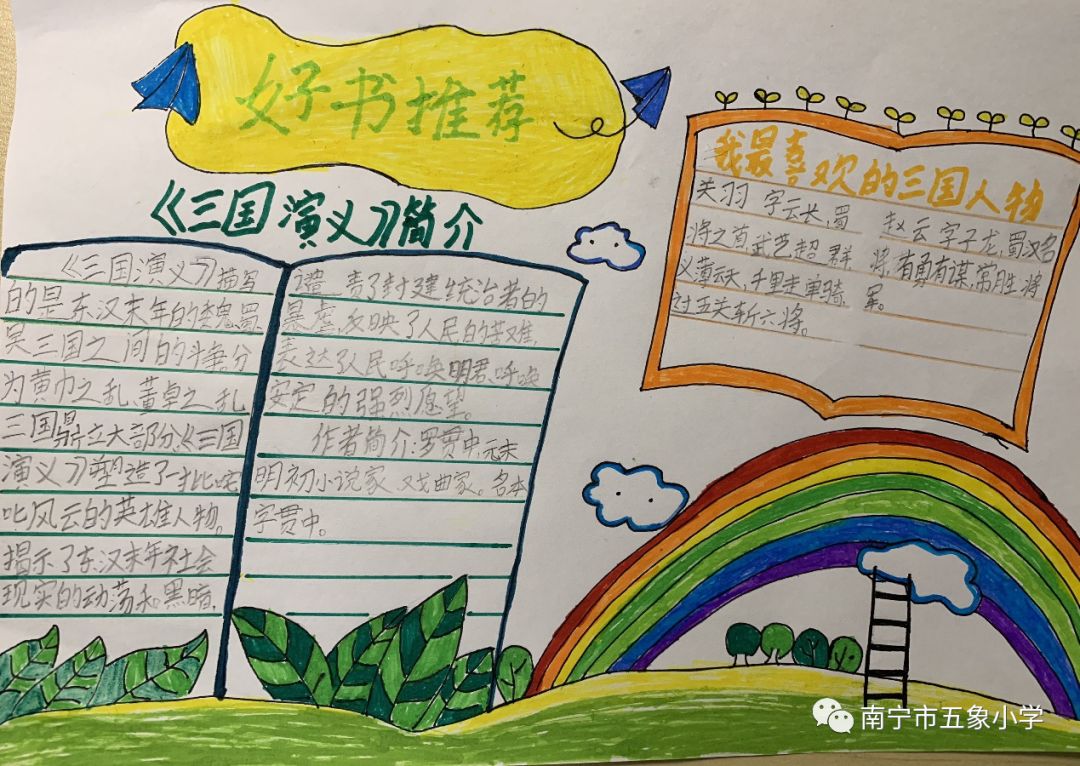 好书推荐
《三国演义》简介
《三国演义》描写
的是东汉末年的魏、蜀、
吴三国之间的斗争分
为黄巾之乱、董卓之乱
三国鼎立大部分、《三国
演义》塑造了一批咤
叱风云的英雄人物。
揭示了东汉末年社会
现实的动荡和黑暗,
谴责了封建统治者的
暴虐,反映了人民的苦难,
表达了人民呼唤明君、呼唤
安定的强烈愿望。
作者简介:罗贯中,元末
明初小说家戏曲家。名本
字贯中。
我最喜欢的三国人物
关羽 字云长,蜀
将之首,武艺超群
义薄云天,千里走单骑,
过五关斩六将。
赵云字子龙,蜀汉名
将,有勇有谋,常胜将
军。
南宁市五象小学